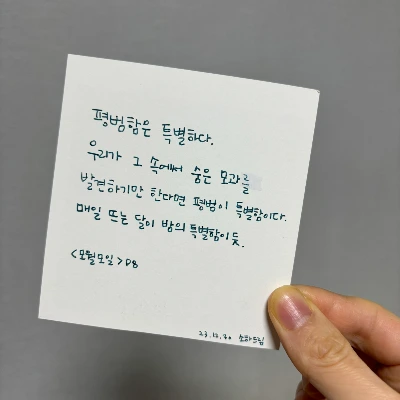 평범함은 특별하다.
우리가 그 속에서 숨은 모과를
발견하기만 한다면 평범이 특별함이다.
매일 뜨는 달이 밤의 특별함이듯.
<모월모일> P8
23.12.30 소파드림